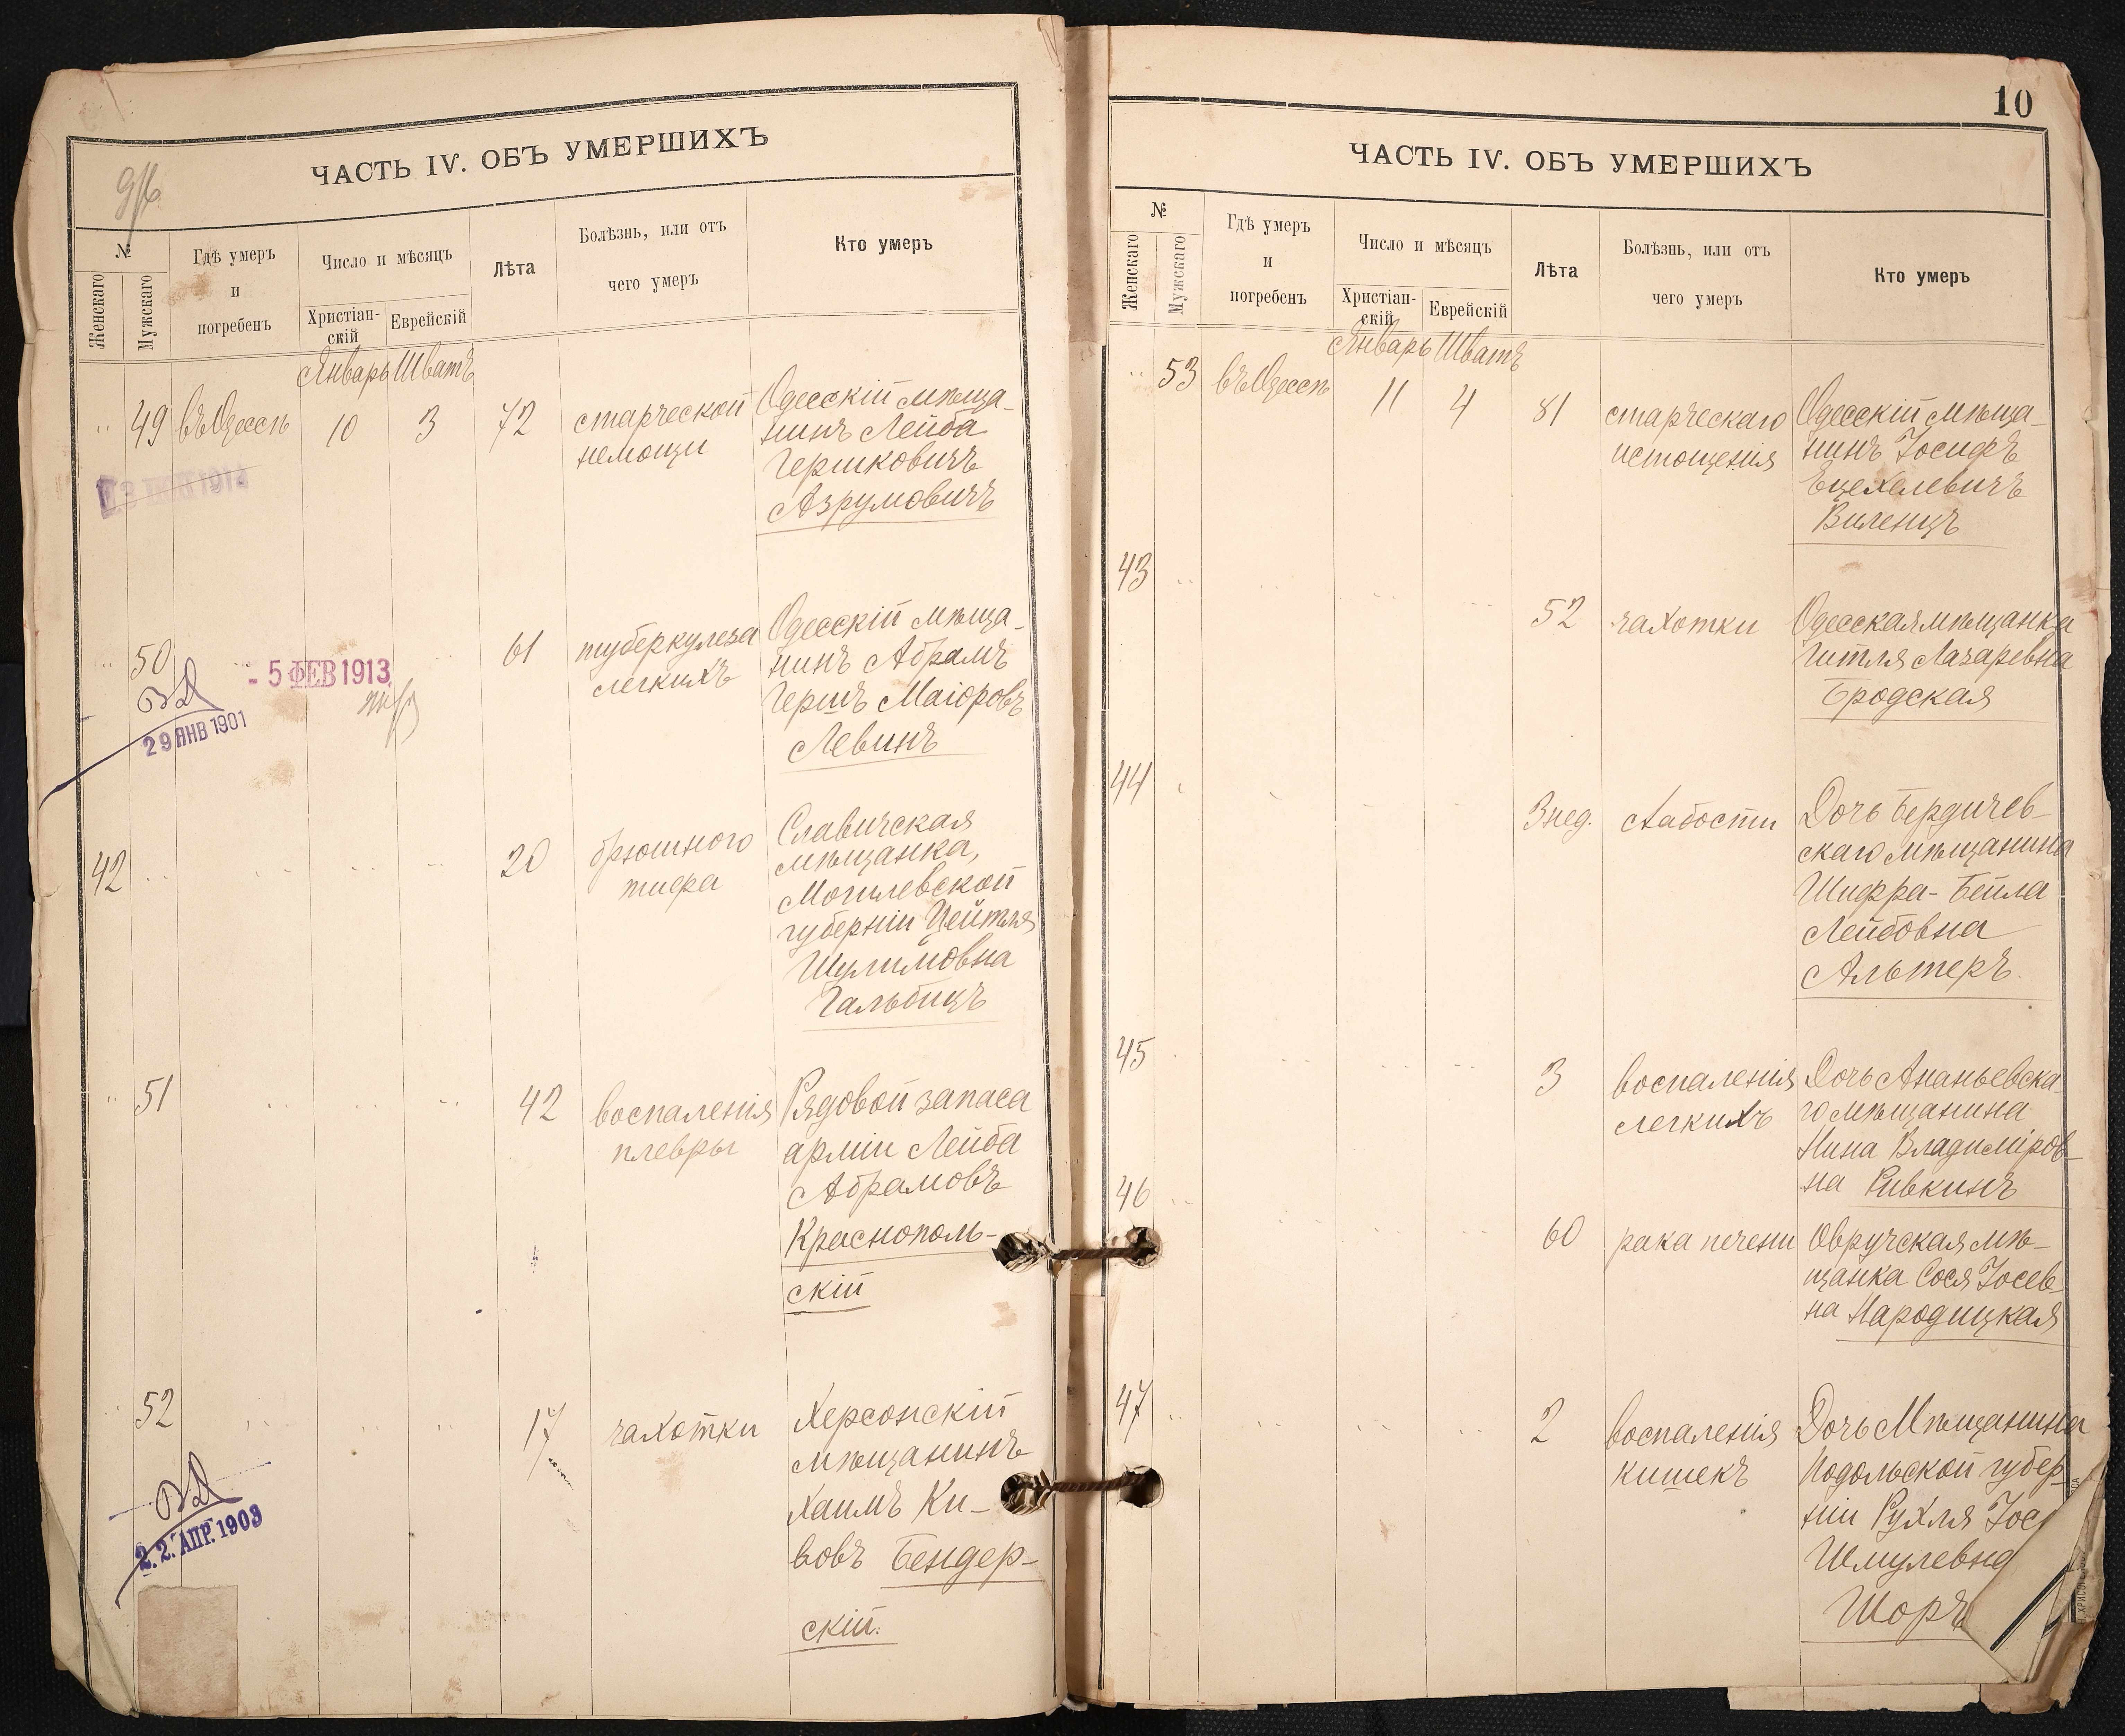 ЧАСТЬ IV. ОБЪ УМЕРШИХЪ
№
Женскаго
Мужскаго
Гдѣ умеръ
и
погребенъ
Число и мѣсяцъ
Христіан-
скій
Еврейскій
Лѣта
Болѣзнь, или отъ
чего умеръ
Кто умеръ
Январь Шватъ
49 въ Одессѣ 10 3 72
старческой
немощи
Одесскій мѣща-
нинъ Лейба
Гершковичъ
Азрумовичъ
1914
50
61
туберкулеза
легкихъ
Одесскій мѣща-
нинъ Абрамъ
Гершъ Маіоровъ
Левинъ
- 5 ФЕВ 1913
29 ЯНВ 1901
42
20
брюшного
тифа
Славичская
мѣщанка,
Могилевской
губерніи Цейтля
Шулимовна
Гальбицъ
51
42
воспаленія
плевры
Рядовой запаса
арміи Лейба
Абрамовъ
Краснополь-
скій
52
17
чахотки
Херсонскій
мѣщанинъ
Хаимъ Ки-
вовъ Бендер-
скій.
2.2. АПР. 1903
10
ЧАСТЬ IV. ОБЪ УМЕРШИХЪ
№
Женскаго
Мужскаго
Гдѣ умеръ
и
погребенъ
Число и мѣсяцъ
Христіан-
скій
Еврейскій
Лѣта
Болѣзнь, или отъ
чего умеръ
Кто умеръ
Январь Шватъ
53 въ Одессѣ 11 4 81
старческаго
истощенія
Одесскій мѣща-
нинъ Іосифъ
Ецехелевичъ
Виленцъ
43
52
чахотки
Одесская мѣщанка
Гитля Лазаревна
Бродская
44
3 нед.
слабости
Дочь Бердичев-
скаго мѣщанина
Шифра-Бейла
Лейбовна
Альтеръ.
45
3
воспаленія
легкихъ
Дочь Ананьевска-
го мѣщанина
Нина Владиміров-
на Ривкинъ
46
60
рака печени
Овручская мѣ-
щанка Сося Іосев-
на Народицкая
47
2
воспаленія
кишекъ
Дочь Мѣщанина
Подольской губер-
ніи Рухля Іос
Шмулевна
Шоръ